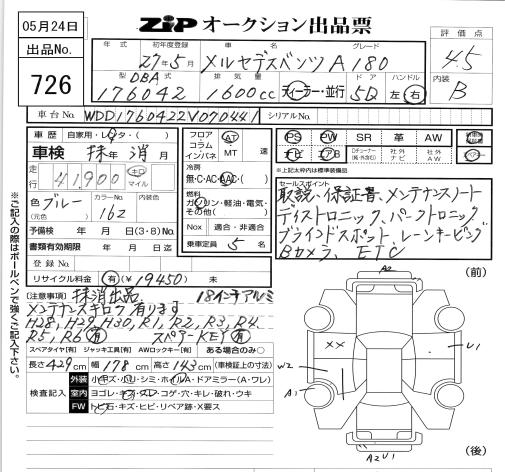 05月24日
ZiP オークション出品票
出品No.
726
年式 初年度登録 車名 グレード 評価点
27年5月 メルセデスベンツ A180 4.5
型 DBA 排気量 ドア ハンドル 内装
176042 1600cc ディーラー・並行 5D 左 右 B
車台No. WDD1760422V070441 シリアルNo.
車歴 自家用・レンタ・( )
車検 抹年 消月
走行 41,900 km マイル
色 ブルー (元色) カラーNo. 162 内装色
予備検 年 月 日 (3・8)No.
書類有効期限 年 月 日
登録No.
リサイクル料金 有 (¥19450) 未
フロア コラム インパネ AT MT 速
冷房 無・C・AC・AAC・( )
燃料 ガソリン・軽油・電気・その他( )
Nox 適合・非適合
乗車定員 5 名
PS PW SR 革 AW
ナビ エアB Dチューナー 社外ナビ 社外AW
※上記太枠内は標準装備品
セールスポイント
取説、保証書、メンテナンスノート
ディストロニック、パークトロニック
ブラインドスポット、レーンキーピング
Bカメラ、ETC
[注意事項] 抹消出品 18インチアルミ
メンテナンスキロク有ります
H28, H29, H30, R1, R2, R3, R4
R5, R6 有 スペアーKEY 有
スペアタイヤ[有] ジャッキ工具[有] AWロックキー[有] ある場合のみ○
長さ 429cm 幅 178cm 高さ 143cm (車検証上の寸法)
検査記入
外装 小キズ・ハリ・シミ・ホイルA・ドアミラー(A・ワレ)
室内 ヨゴレ・キズ・スレ・コゲ・穴・キレ・破れ・ウキ
FW トビ石・キズ・ヒビ・リペア跡・X要ス
※ご記入の際はボールペンで強くご記入下さい。
(前)
A2
XX
U1
W2
A1
A2 U1
(後)